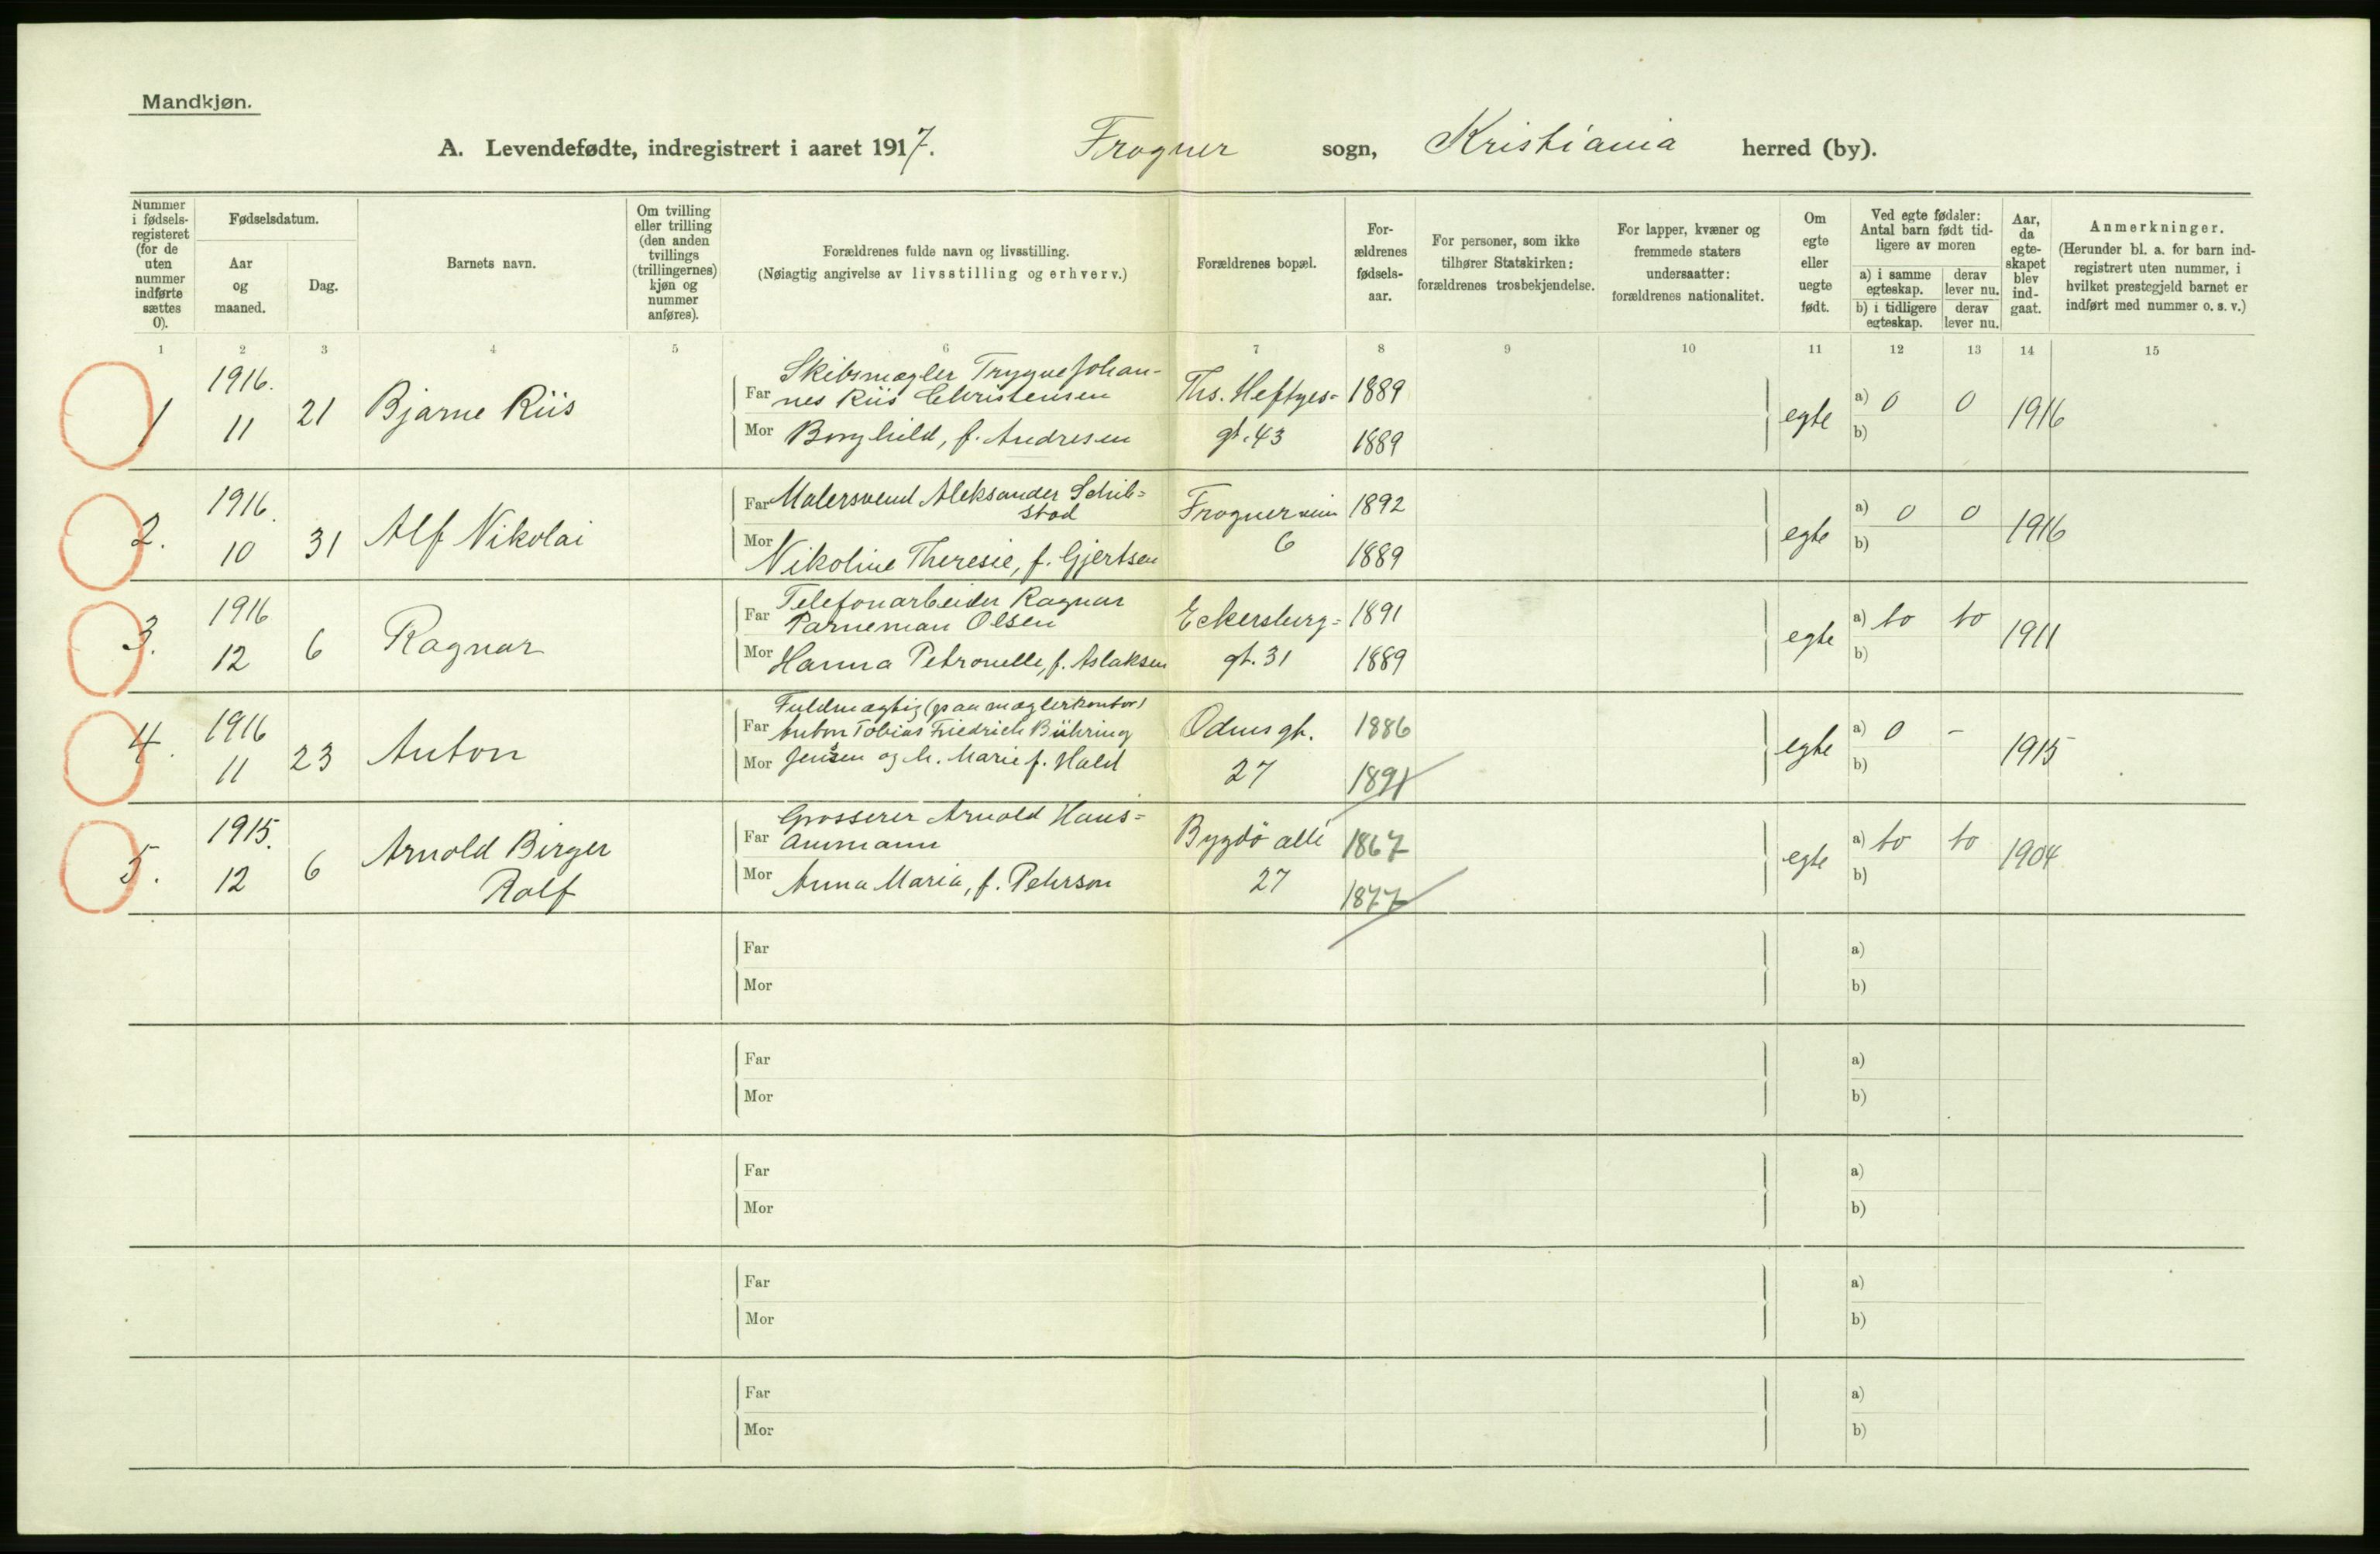 Mandkjøn.
A. Levendefødte, indregistrert i aaret 1917. Frogner sogn, Kristiania herred (by).
Nummer i fødselsregisteret (for de uten nummer indførte sættes 0).
Fødselsdatum.
Aar og maaned.
Dag.
Barnets navn.
Om tvilling eller trilling (den anden tvillings (trillingernes) kjøn og nummer anføres).
Forældrenes fulde navn og livsstilling.
(Nøiagtig angivelse av livsstilling og erhverv.)
Forældrenes bopæl.
Forældrenes fødselsaar.
For personer, som ikke tilhører Statskirken: forældrenes trosbekjendelse.
For lapper, kvæner og fremmede staters undersaatter: forældrenes nationalitet.
Om egte eller uegte født.
Ved egte fødsler: Antal barn født tidligere av moren
a) i samme egteskap.
derav lever nu.
b) i tidligere egteskap.
derav lever nu.
Aar, da egteskapet blev indgaat.
Anmerkninger.
(Herunder bl. a. for barn indregistrert uten nummer, i hvilket prestegjeld barnet er indført med nummer o. s. v.)
1 2 3 4 5 6 7 8 9 10 11 12 13 14 15
1 1916. 11 21 Bjarne Riis
Skibsmægler Trygve Johan-
Far nes Riis Christensen
Mor Borghild, f. Andresen
Ths. Heftyes=
gt. 43
1889
1889
egte a) 0 0 1916
b)
2. 1916. 10 31 Alf Nikolai
Far Malersvend Aleksander Schib=
stad
Mor Nikoline Theresie, f. Gjertsen
Frognervein
6
1892
1889
egte a) 0 0 1916
b)
3. 1916 12 6 Ragnar
Telefonarbeider Ragnar
Far Parneman Olsen
Mor Hanna Petronelle, f. Aslaksen
Eckersburg=
gt. 31
1891
1889
egte a) to to 1911
b)
4. 1916 11 23 Anton
Fuldmægtig (paa mæglerkontor)
Far Anton Tobias Friedrich Bühring
Mor Jensen og M. Marie f. Hald
Odins gt.
27
1886
1891
egte a) 0 - 1915
b)
5. 1915. 12 6 Arnold Birger
Rolf
Grosserer Arnold Haus=
Far ammann
Mor Anna Maria, f. Pehrson
Bygdö allé
27
1867
1877
egte a) to to 1904
b)
Far a)
Mor b)
Far a)
Mor b)
Far a)
Mor b)
Far a)
Mor b)
Far a)
Mor b)